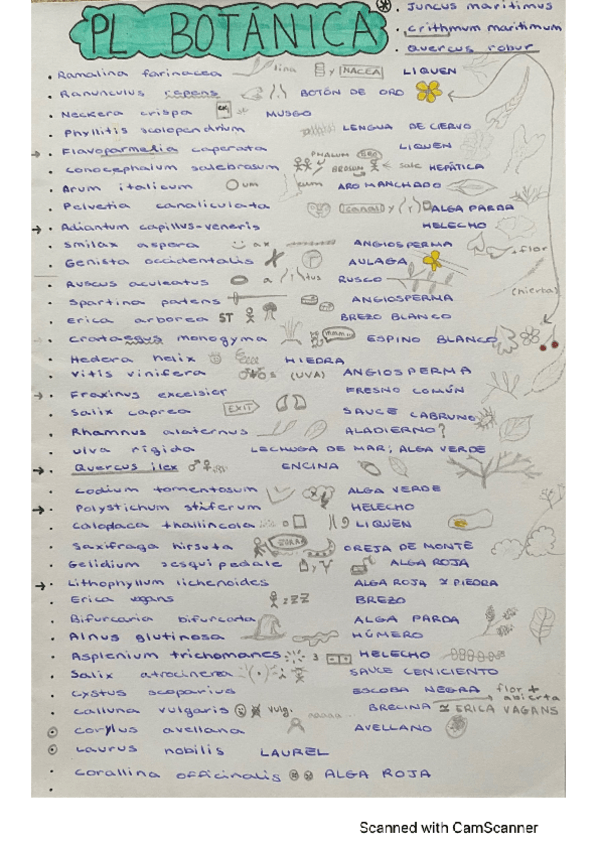 PL BOTÁNICA
Juncus maritimus
crithmum maritimum
Quercus robur
Ramalina farinacea lina y NACEA LIQUEN
Ranunculus repens BOTÓN DE ORO
Neckera crispa MUSGO
Phyllitis scolopendrium LENGUA DE CIERVO
Flavoparmelia caperata LIQUEN
Conocephalum salebrosum sale HEPÁTICA
Arum italicum um cum ARO MANCHADO
Pelvetia canaliculata canal y ALGA PARDA
Adiantum capillus-veneris HELECHO
Smilax aspera ax ANGIOSPERMA flor
Genista occidentalis AULAGA
Ruscus aculeatus a tus RUSCO
Spartina patens ANGIOSPERMA (hierba)
Erica arborea ST BREZO BLANCO
Crataegus monogyma ESPINO BLANCO
Hedera helix HIEDRA
Vitis vinifera s (UVA) ANGIOSPERMA
Fraxinus excelsior FRESNO COMÚN
Salix caprea EXIT SAUCE CABRUNO
Rhamnus alaternus ALADIERNO?
Ulva rígida LECHUGA DE MAR; ALGA VERDE
Quercus ilex ENCINA
Codium tomentosum ALGA VERDE
Polystichum stiferum HELECHO
Calopaca thallincola LIQUEN
Saxifraga hirsuta OREJA DE MONTE
Gelidium sesquipedale y ALGA ROJA
Lithophyllum lichenoides ALGA ROJA ≈ PIEDRA
Erica vagans zZZ BREZO
Bifurcaria bifurcata ALGA PARDA
Alnus glutinosa HÚMERO
Asplenium trichomanes 3 HELECHO
Salix atrocinerea SAUCE CENICIENTO
Cystus scoparius ESCOBA NEGRA flor + abierta
Calluna vulgaris vulg. BRECINA ≈ ERICA VAGANS
Corylus avellana naaaa... AVELLANO
Laurus nobilis LAUREL
Corallina officinalis ALGA ROJA
Scanned with CamScanner